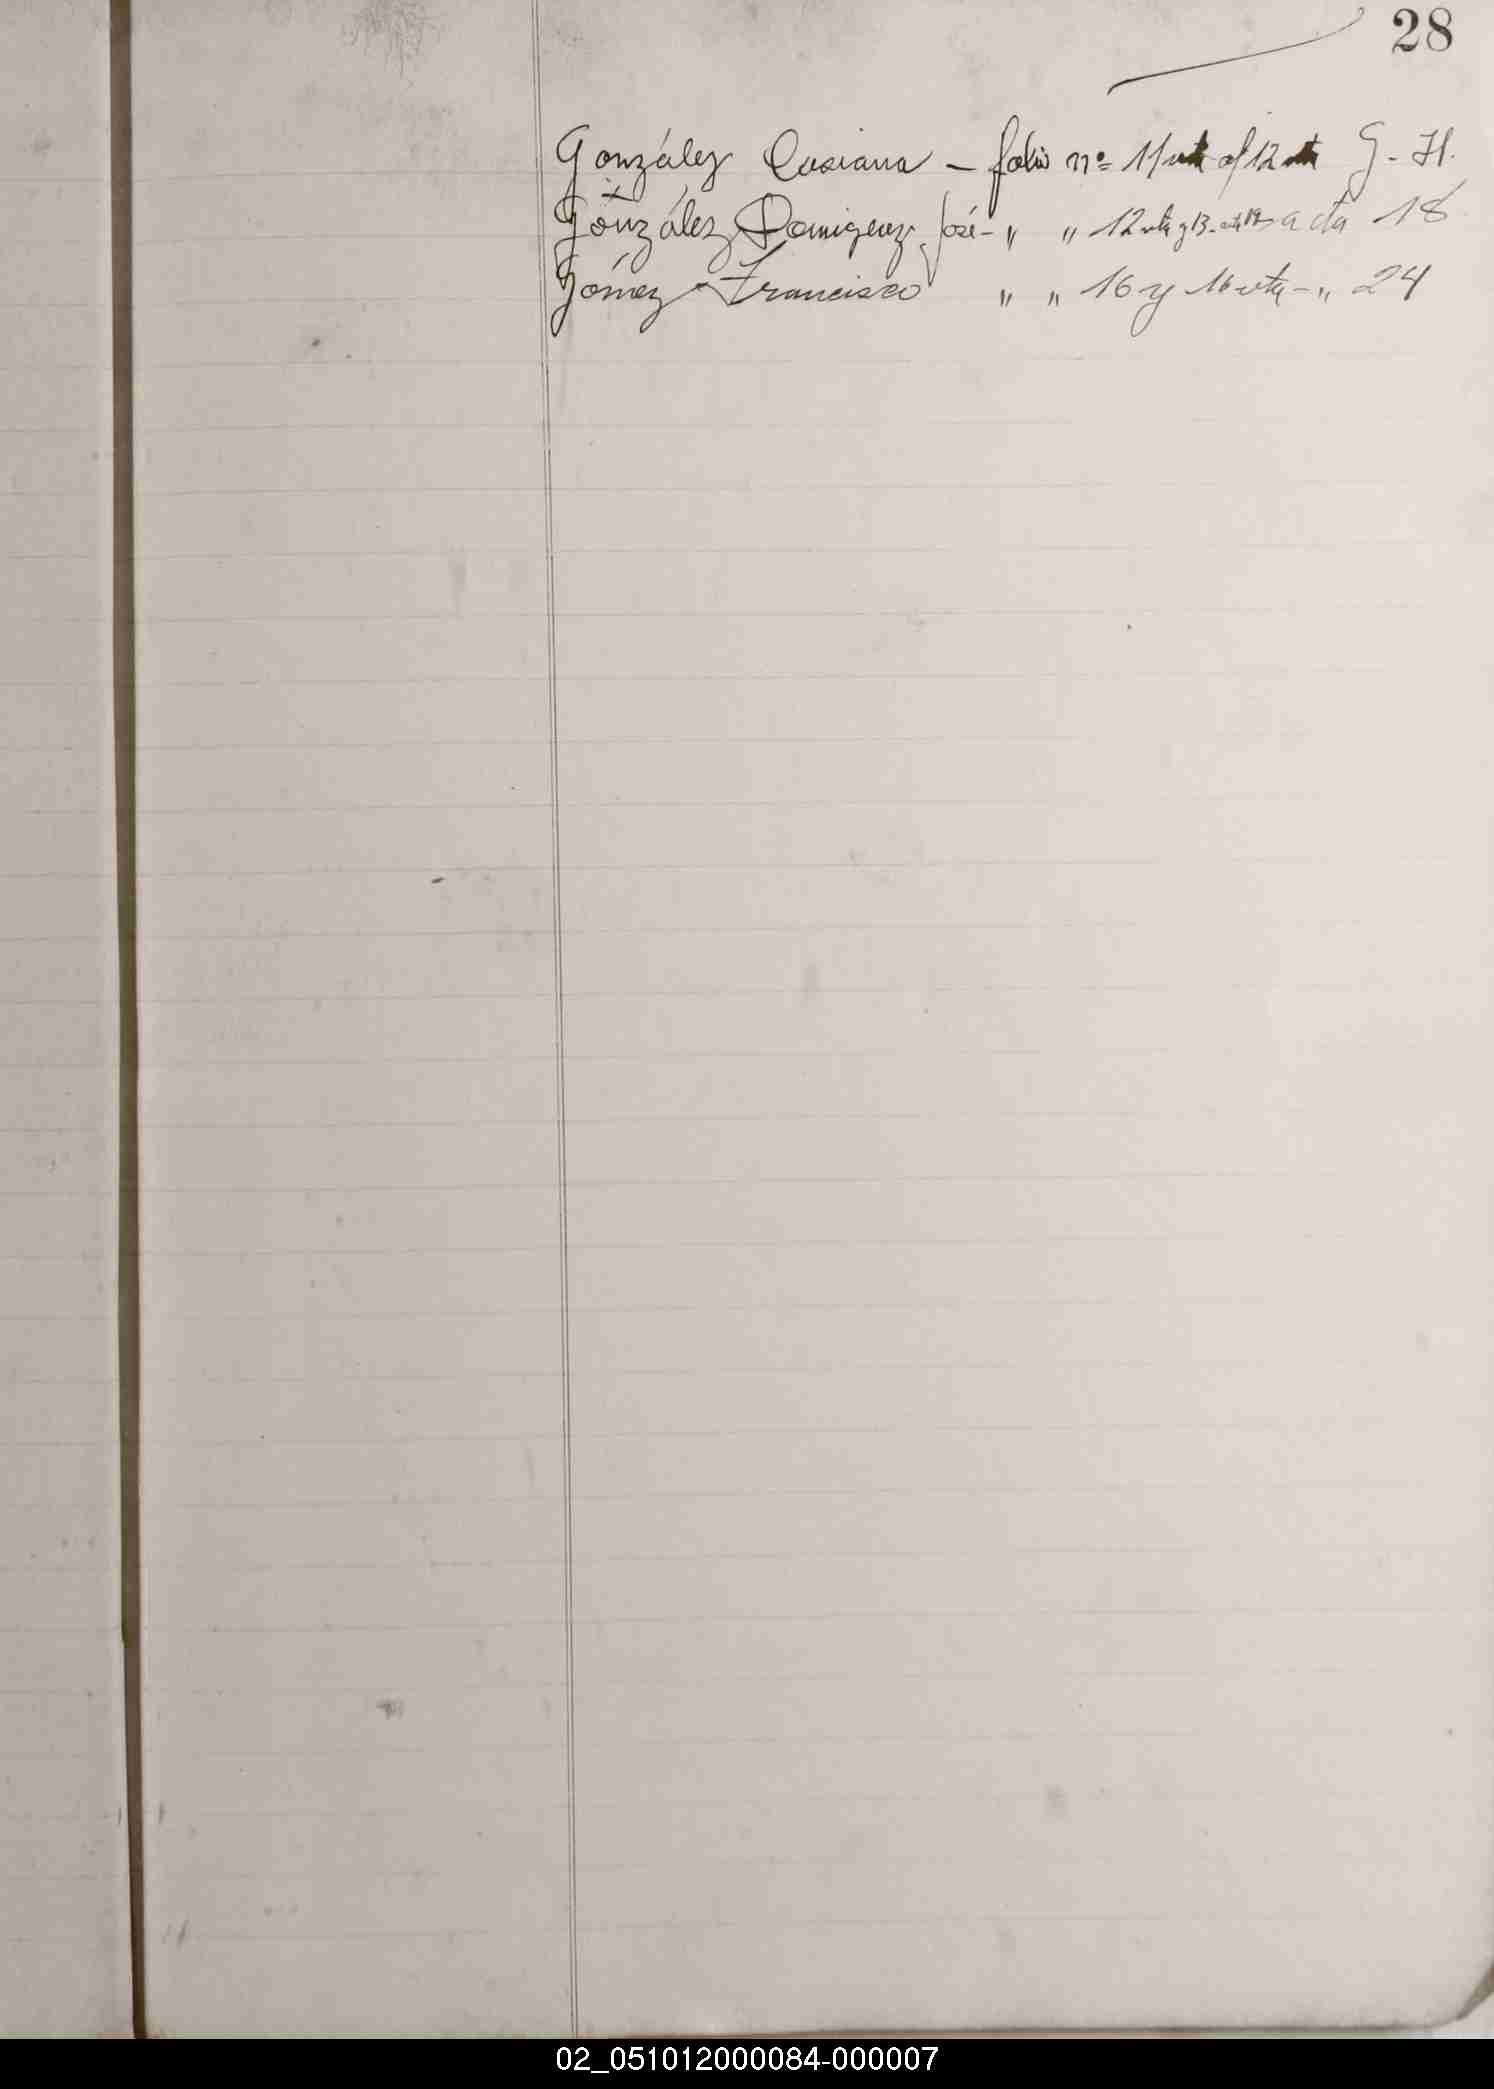 28
González Casiana - folio nº 11 vta al 12 vta G-H.
González Domigenz José - " " 12 vta y 13 - acta 18
Gómez Francisco " " 16 y 16 vta - " 24
02_051012000084-000007